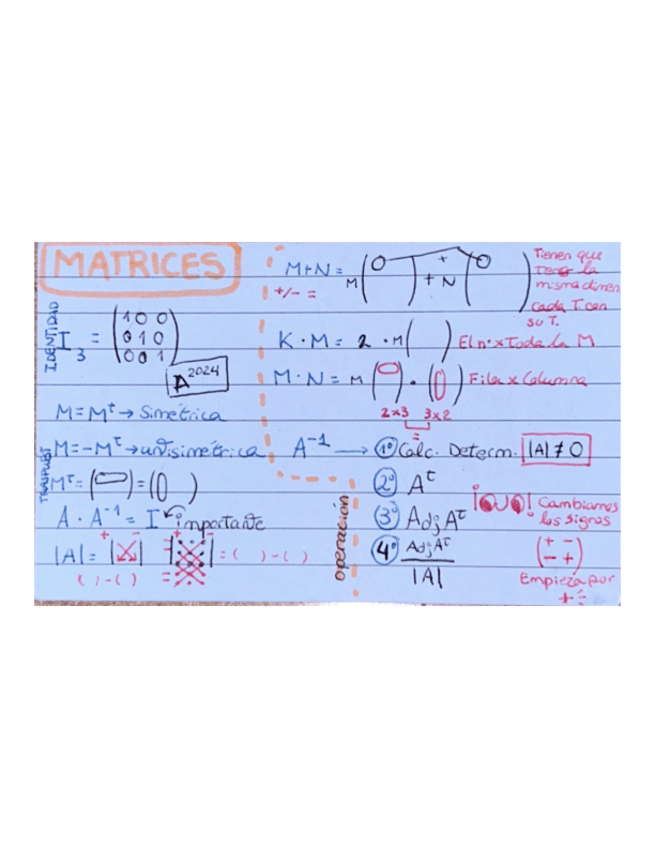 MATRICES
IDENTIDAD
I₃ = (1 0 0
0 1 0
0 0 1)
A²⁰²⁴
M=Mᵗ → Simétrica
M=-Mᵗ → antisimétrica
Mᵗ= ( ) = ( )
A · A⁻¹ = I importante
|A| = + | | - + | | - = ( ) - ( )
( ) - ( )
operación
M+N = M( ) + N( )
+
+/- =
Tienen que
la
misma dimen.
cada T. con
su T.
K · M = 2 · M( ) El nº x Toda la M
M · N = M( ) · ( ) Fila x Columna
2x3 3x2
=
A⁻¹ → 1º Calc. Determ. |A| ≠ 0
2º Aᵗ
3º Adj Aᵗ
¡OJO! Cambiamos
los signos
4º Adj Aᵗ
|A|
(+ -
- +)
Empieza por
+